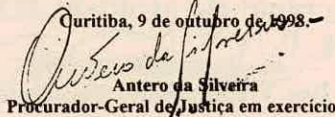 Curitiba, 9 de outubro de 1998.-
Antero da Silveira
Antero da Silveira
Procurador-Geral de Justiça em exercício